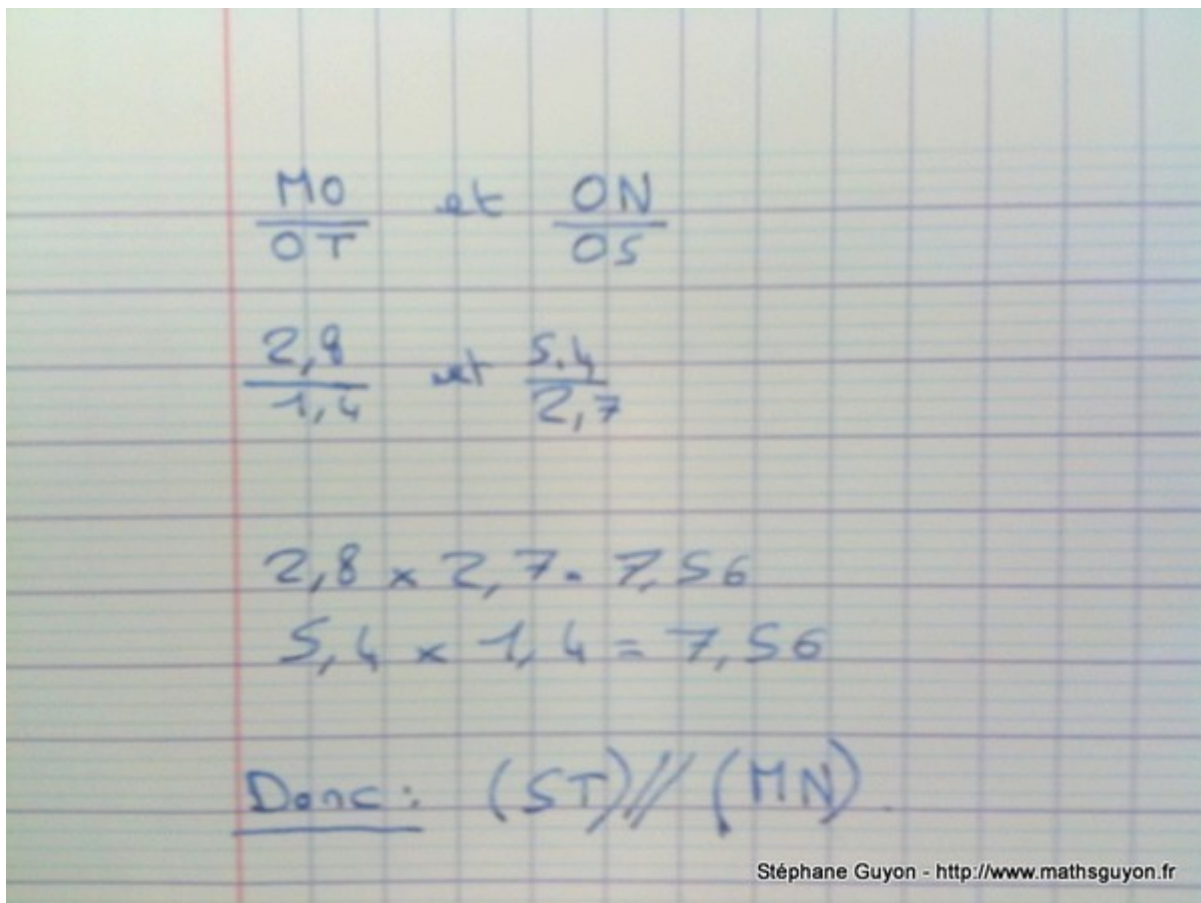 MO/OT et ON/OS
2,8/1,4 et 5.4/2,7
2,8 x 2,7 = 7,56
5,4 x 1,4 = 7,56
Donc : (ST)//(MN).
Stéphane Guyon - http://www.mathsguyon.fr